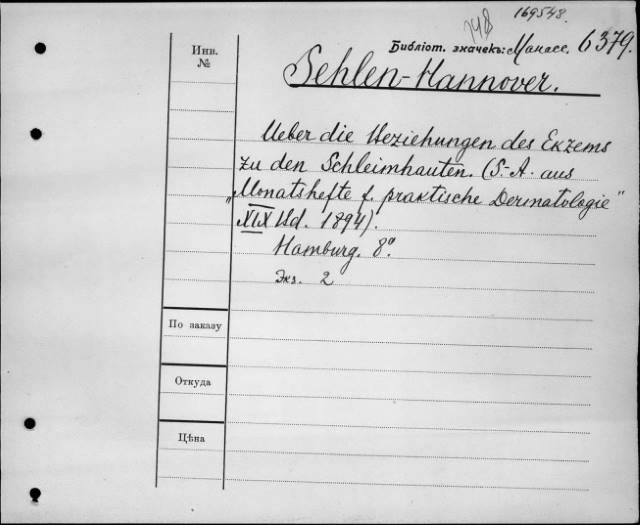 169548.
748
Библіот. значекъ: Манассе. 6379.
Инв.
№
Sehlen-Hannover.
Ueber die Beziehungen des Ekzems
zu den Schleimhauten. (S.-A. aus
„Monatshefte f. praktische Dermatologie"
XIX Bd. 1894).
Hamburg. 8º.
Экз. 2
По заказу
Откуда
Цѣна